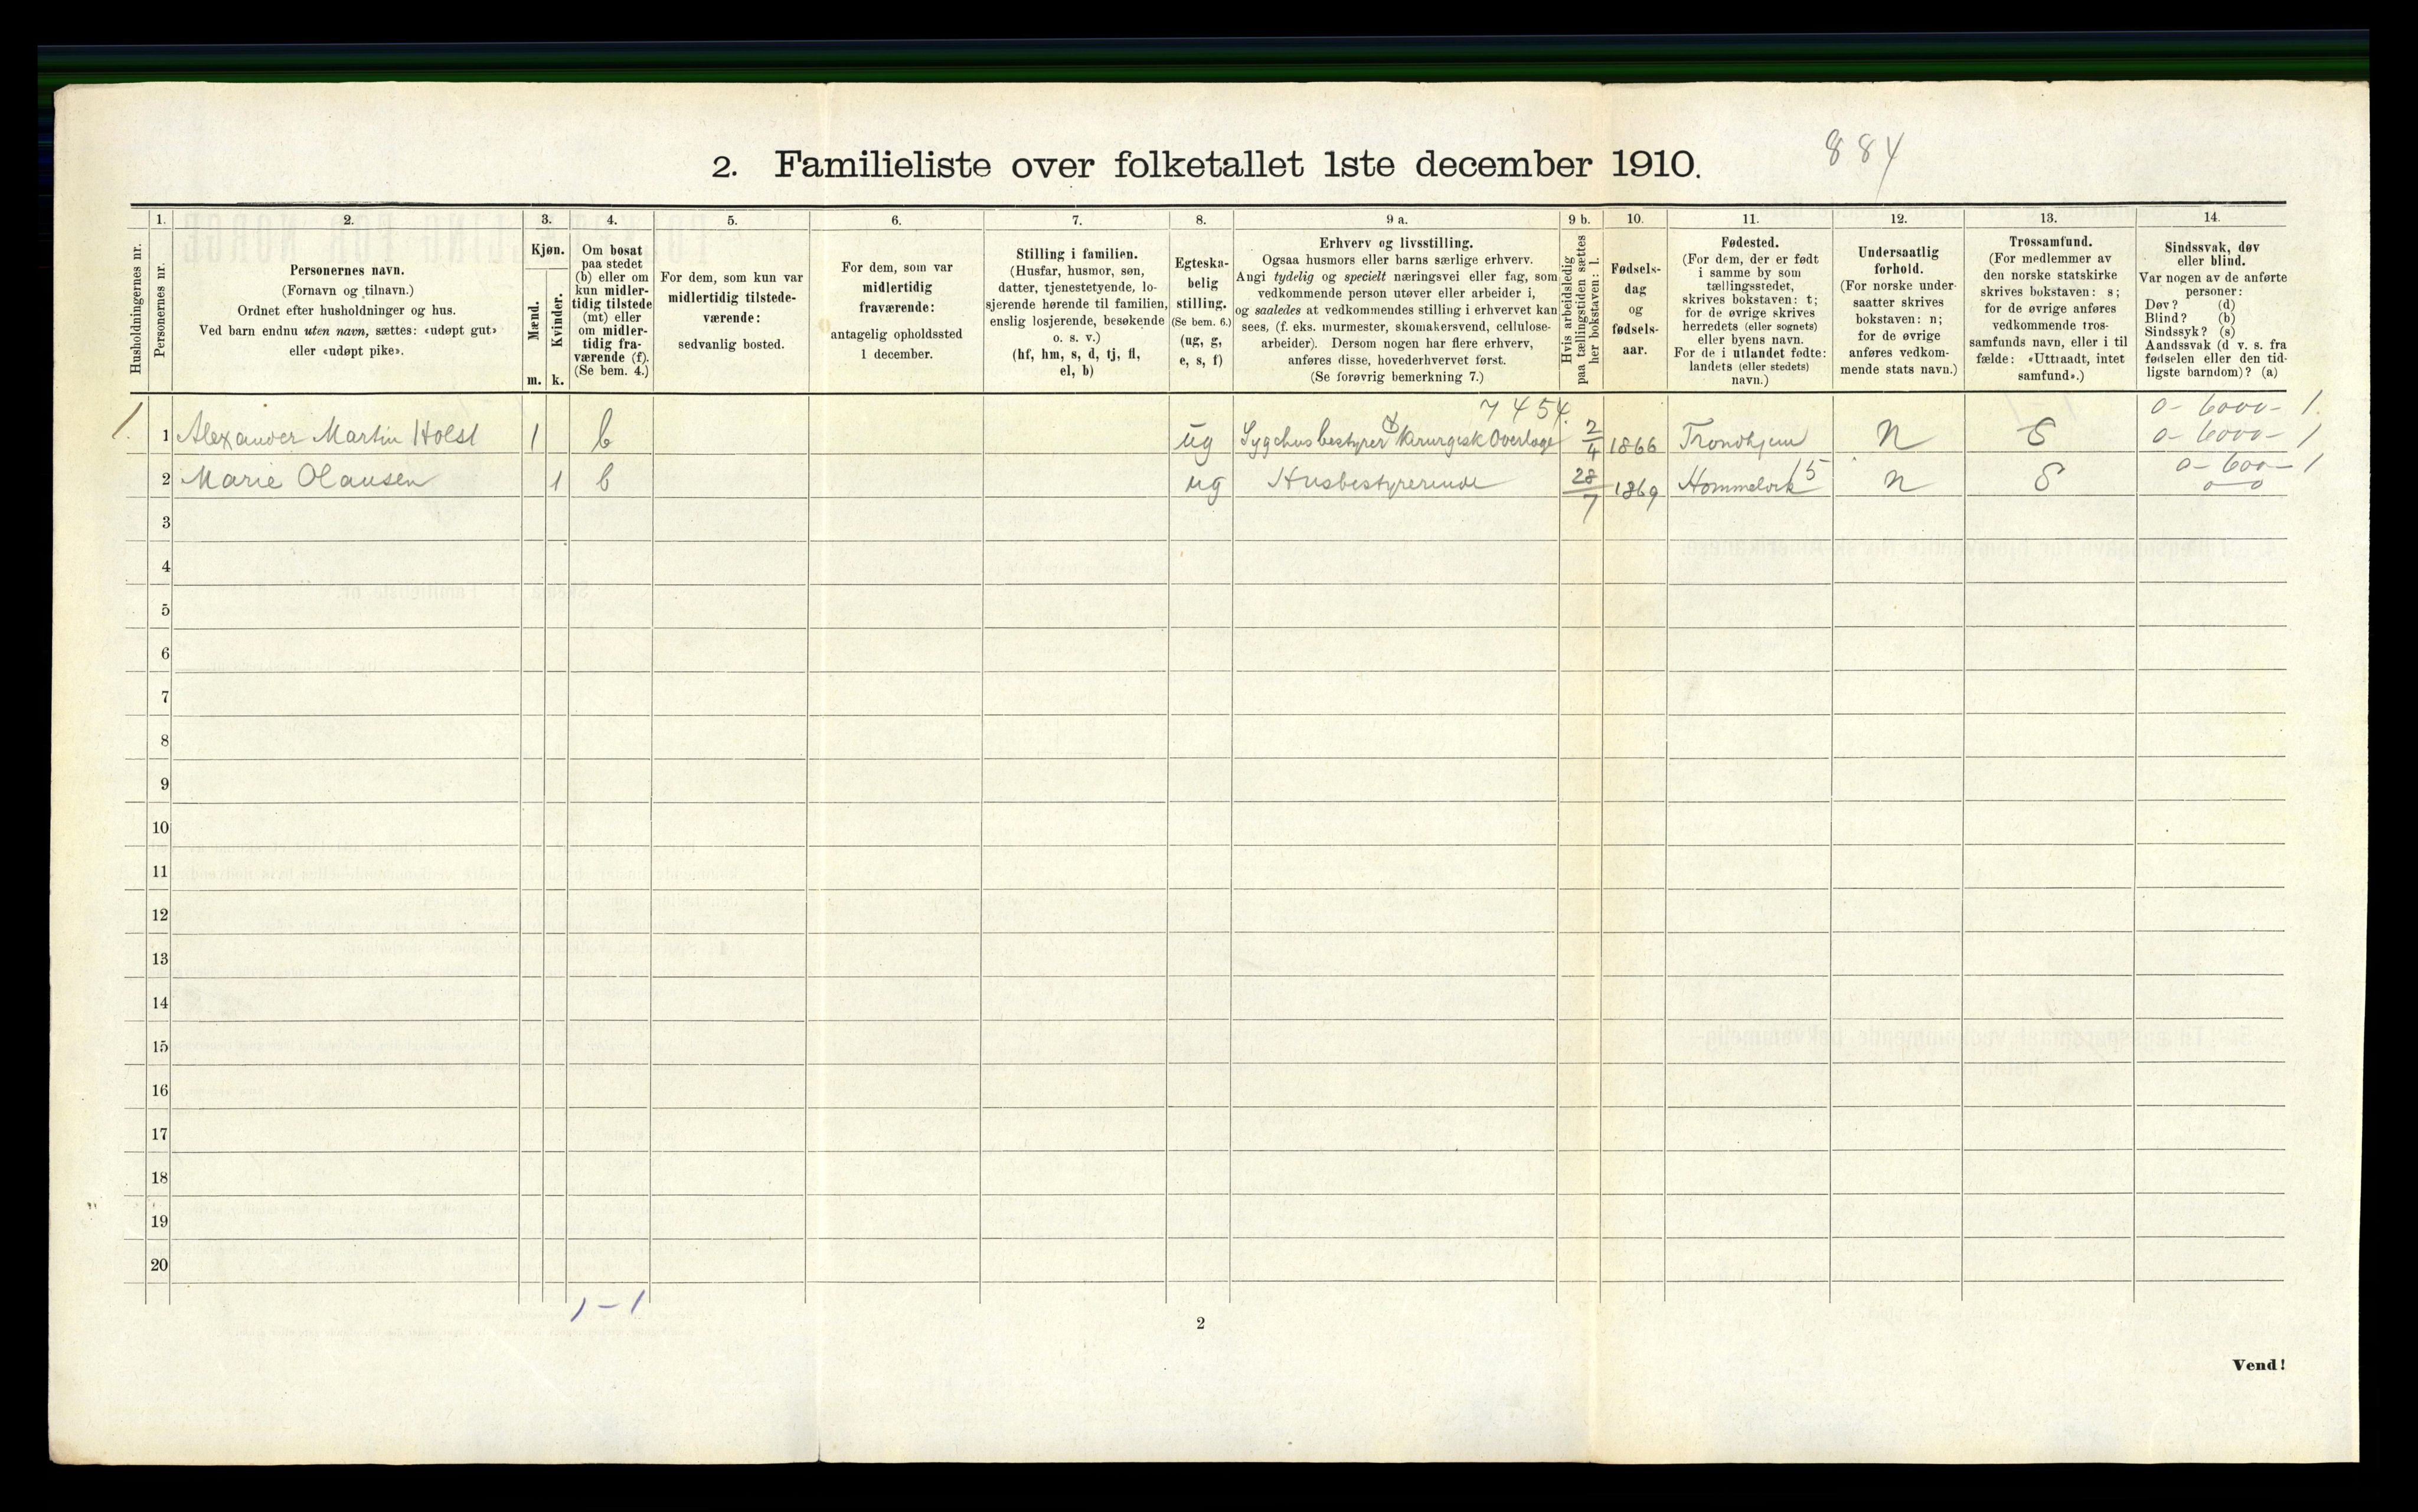 2. Familieliste over folketallet 1ste december 1910.
884
Husholdningernes nr.
1.
Personernes nr.
2.
Personernes navn.
(Fornavn og tilnavn.)
Ordnet efter husholdninger og hus.
Ved barn endnu uten navn, sættes: «udøpt gut»
eller «udøpt pike».
3.
Kjøn.
Mænd.
m.
Kvinder.
k.
4.
Om bosat
paa stedet
(b) eller om
kun midler-
tidig tilstede
(mt) eller
om midler-
tidig fra-
værende (f).
(Se bem. 4.)
5.
For dem, som kun var
midlertidig tilstede-
værende:
sedvanlig bosted.
6.
For dem, som var
midlertidig
fraværende:
antagelig opholdssted
1 december.
7.
Stilling i familien.
(Husfar, husmor, søn,
datter, tjenestetyende, lo-
sjerende hørende til familien,
enslig losjerende, besøkende
o. s. v.)
(hf, hm, s, d, tj, fl,
el, b)
8.
Egteska-
belig
stilling.
(Se bem. 6.)
(ug, g,
e, s, f)
9 a.
Erhverv og livsstilling.
Ogsaa husmors eller barns særlige erhverv.
Angi tydelig og specielt næringsvei eller fag, som
vedkommende person utøver eller arbeider i,
og saaledes at vedkommendes stilling i erhvervet kan
sees, (f. eks. murmester, skomakersvend, cellulose-
arbeider). Dersom nogen har flere erhverv,
anføres disse, hovederhvervet først.
(Se forøvrig bemerkning 7.)
9 b.
Hvis arbeidsledig
paa tællingstiden sættes
her bokstaven: l.
10.
Fødsels-
dag
og
fødsels-
aar.
11.
Fødested.
(For dem, der er født
i samme by som
tællingsstedet,
skrives bokstaven: t;
for de øvrige skrives
herredets (eller sognets)
eller byens navn.
For de i utlandet fødte:
landets (eller stedets)
navn.)
12.
Undersaatlig
forhold.
(For norske under-
saatter skrives
bokstaven: n;
for de øvrige
anføres vedkom-
mende stats navn.)
13.
Trossamfund.
(For medlemmer av
den norske statskirke
skrives bokstaven: s;
for de øvrige anføres
vedkommende tros-
samfunds navn, eller i til
fælde: «Uttraadt, intet
samfund».)
14.
Sindssvak, døv
eller blind.
Var nogen av de anførte
personer:
Døv? (d)
Blind? (b)
Sindssyk? (s)
Aandssvak (d v. s. fra
fødselen eller den tid-
ligste barndom)? (a)
7454. 0- 6000- 1.
1. 1 Alexander Martin Holst 1 b ug Sygehusbestyrer & Kirurgisk Overlæge 2/4 1866 Trondhjem n S 0- 6000- 1
15 0- 600- 1
2 Marie Olausen 1 b ug Husbestyrerinde 28/7 1869 Hommelvik n S 0 0
3
4
5
6
7
8
9
10
11
12
13
14
15
16
17
18
19
20
1-1
2
Vend!